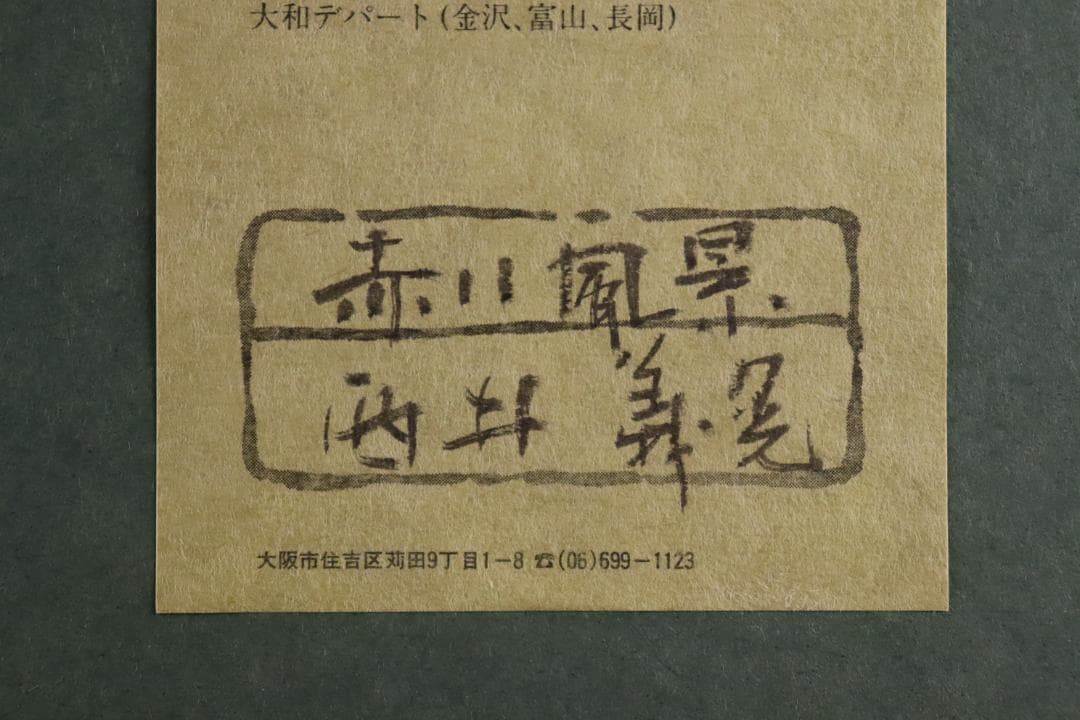 大和デパート(金沢、富山、長岡)
赤川風景
西井義晃
大阪市住吉区苅田9丁目1-8 ☎(06)699-1123